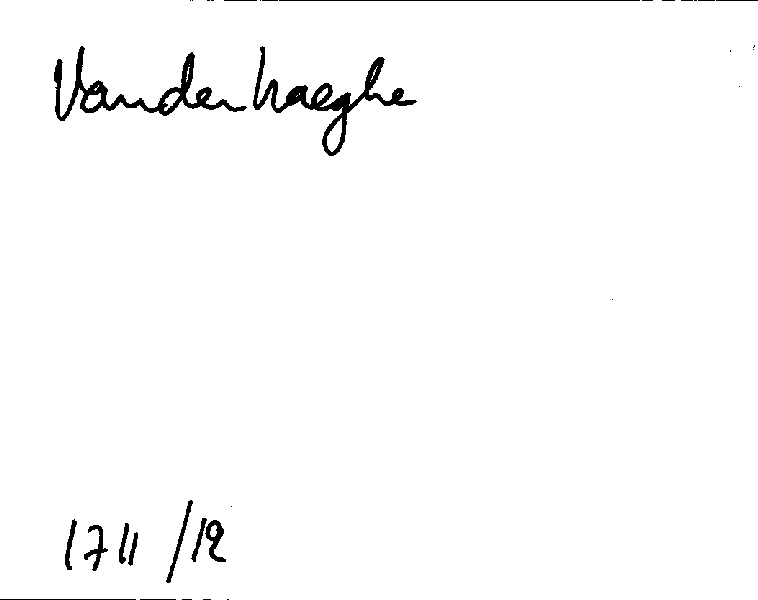 Vanderhaeghe
1711 /12